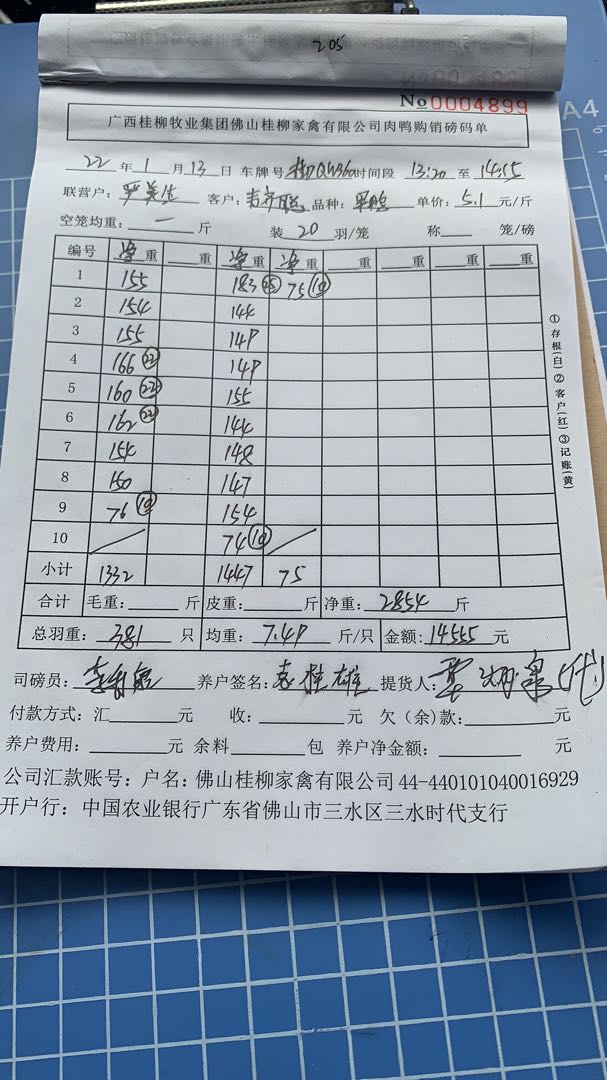 205
No 0004897
No 0004899
A4
广西桂柳牧业集团佛山桂柳家禽有限公司肉鸭购销磅码单
22 年 1 月 13 日 车牌号 桂DQW360 时间段 13:20 至 14:15
联营户: 严美生 客户: 品种: 单价: 5.1 元/斤
空笼均重: 一 斤 装 20 羽/笼 称 笼/磅
编号 净重 重 净重 净重 重 重 重 重
1 155 183 (25) 75 (10)
2 154 144
3 155 147
4 166 (22) 147
5 160 (22) 155
6 162 (22) 144
7 154 148
8 150 147
9 76 (10) 154
10 74 (10)
小计 1332 1447 75
合计 毛重: 斤 皮重: 斤 净重: 2854 斤
总羽重: 381 只 均重: 7.49 斤/只 金额: 14555 元
司磅员: 养户签名: 袁桂雄 提货人: (代)
付款方式: 汇 元 收: 元 欠(余)款: 元
养户费用: 元 余料 包 养户净金额: 元
公司汇款账号: 户名: 佛山桂柳家禽有限公司 44-440101040016929
开户行: 中国农业银行广东省佛山市三水区三水时代支行
①存根(白)②客户(红)③记账(黄)